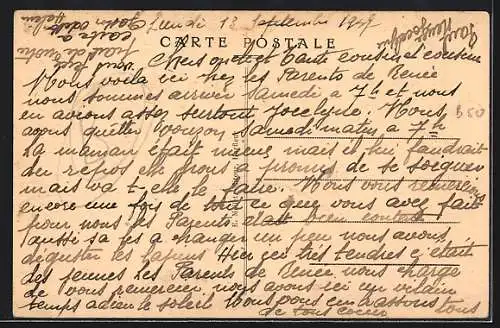 Lundi 12 Septembre 1949
CARTE POSTALE
Chers oncle et tante cousin et cousine
Nous voila ici chez les Parents de Renée
nous sommes arrivés samedi a 7h et nous
en avions assez surtout Jocelyne. Nous
avons quitter samedi matin a 7h
La maman était mieux mais il lui faudrait
du repos elle nous a promis de se soigner
mais va t-elle le faire. Nous vous remercions
encore une fois de ce que vous avez fait
pour nous les Parents était bien content
aussi sa fes a changer un peu nous avons
deguster les lapins Hier soir très tendres c'était
des jeunes Les Parents de Renée nous charge
de vous remercier, nous avons ici un vilain
temps adieu le soleil Nous vous embrassons tous
de tous coeur tous